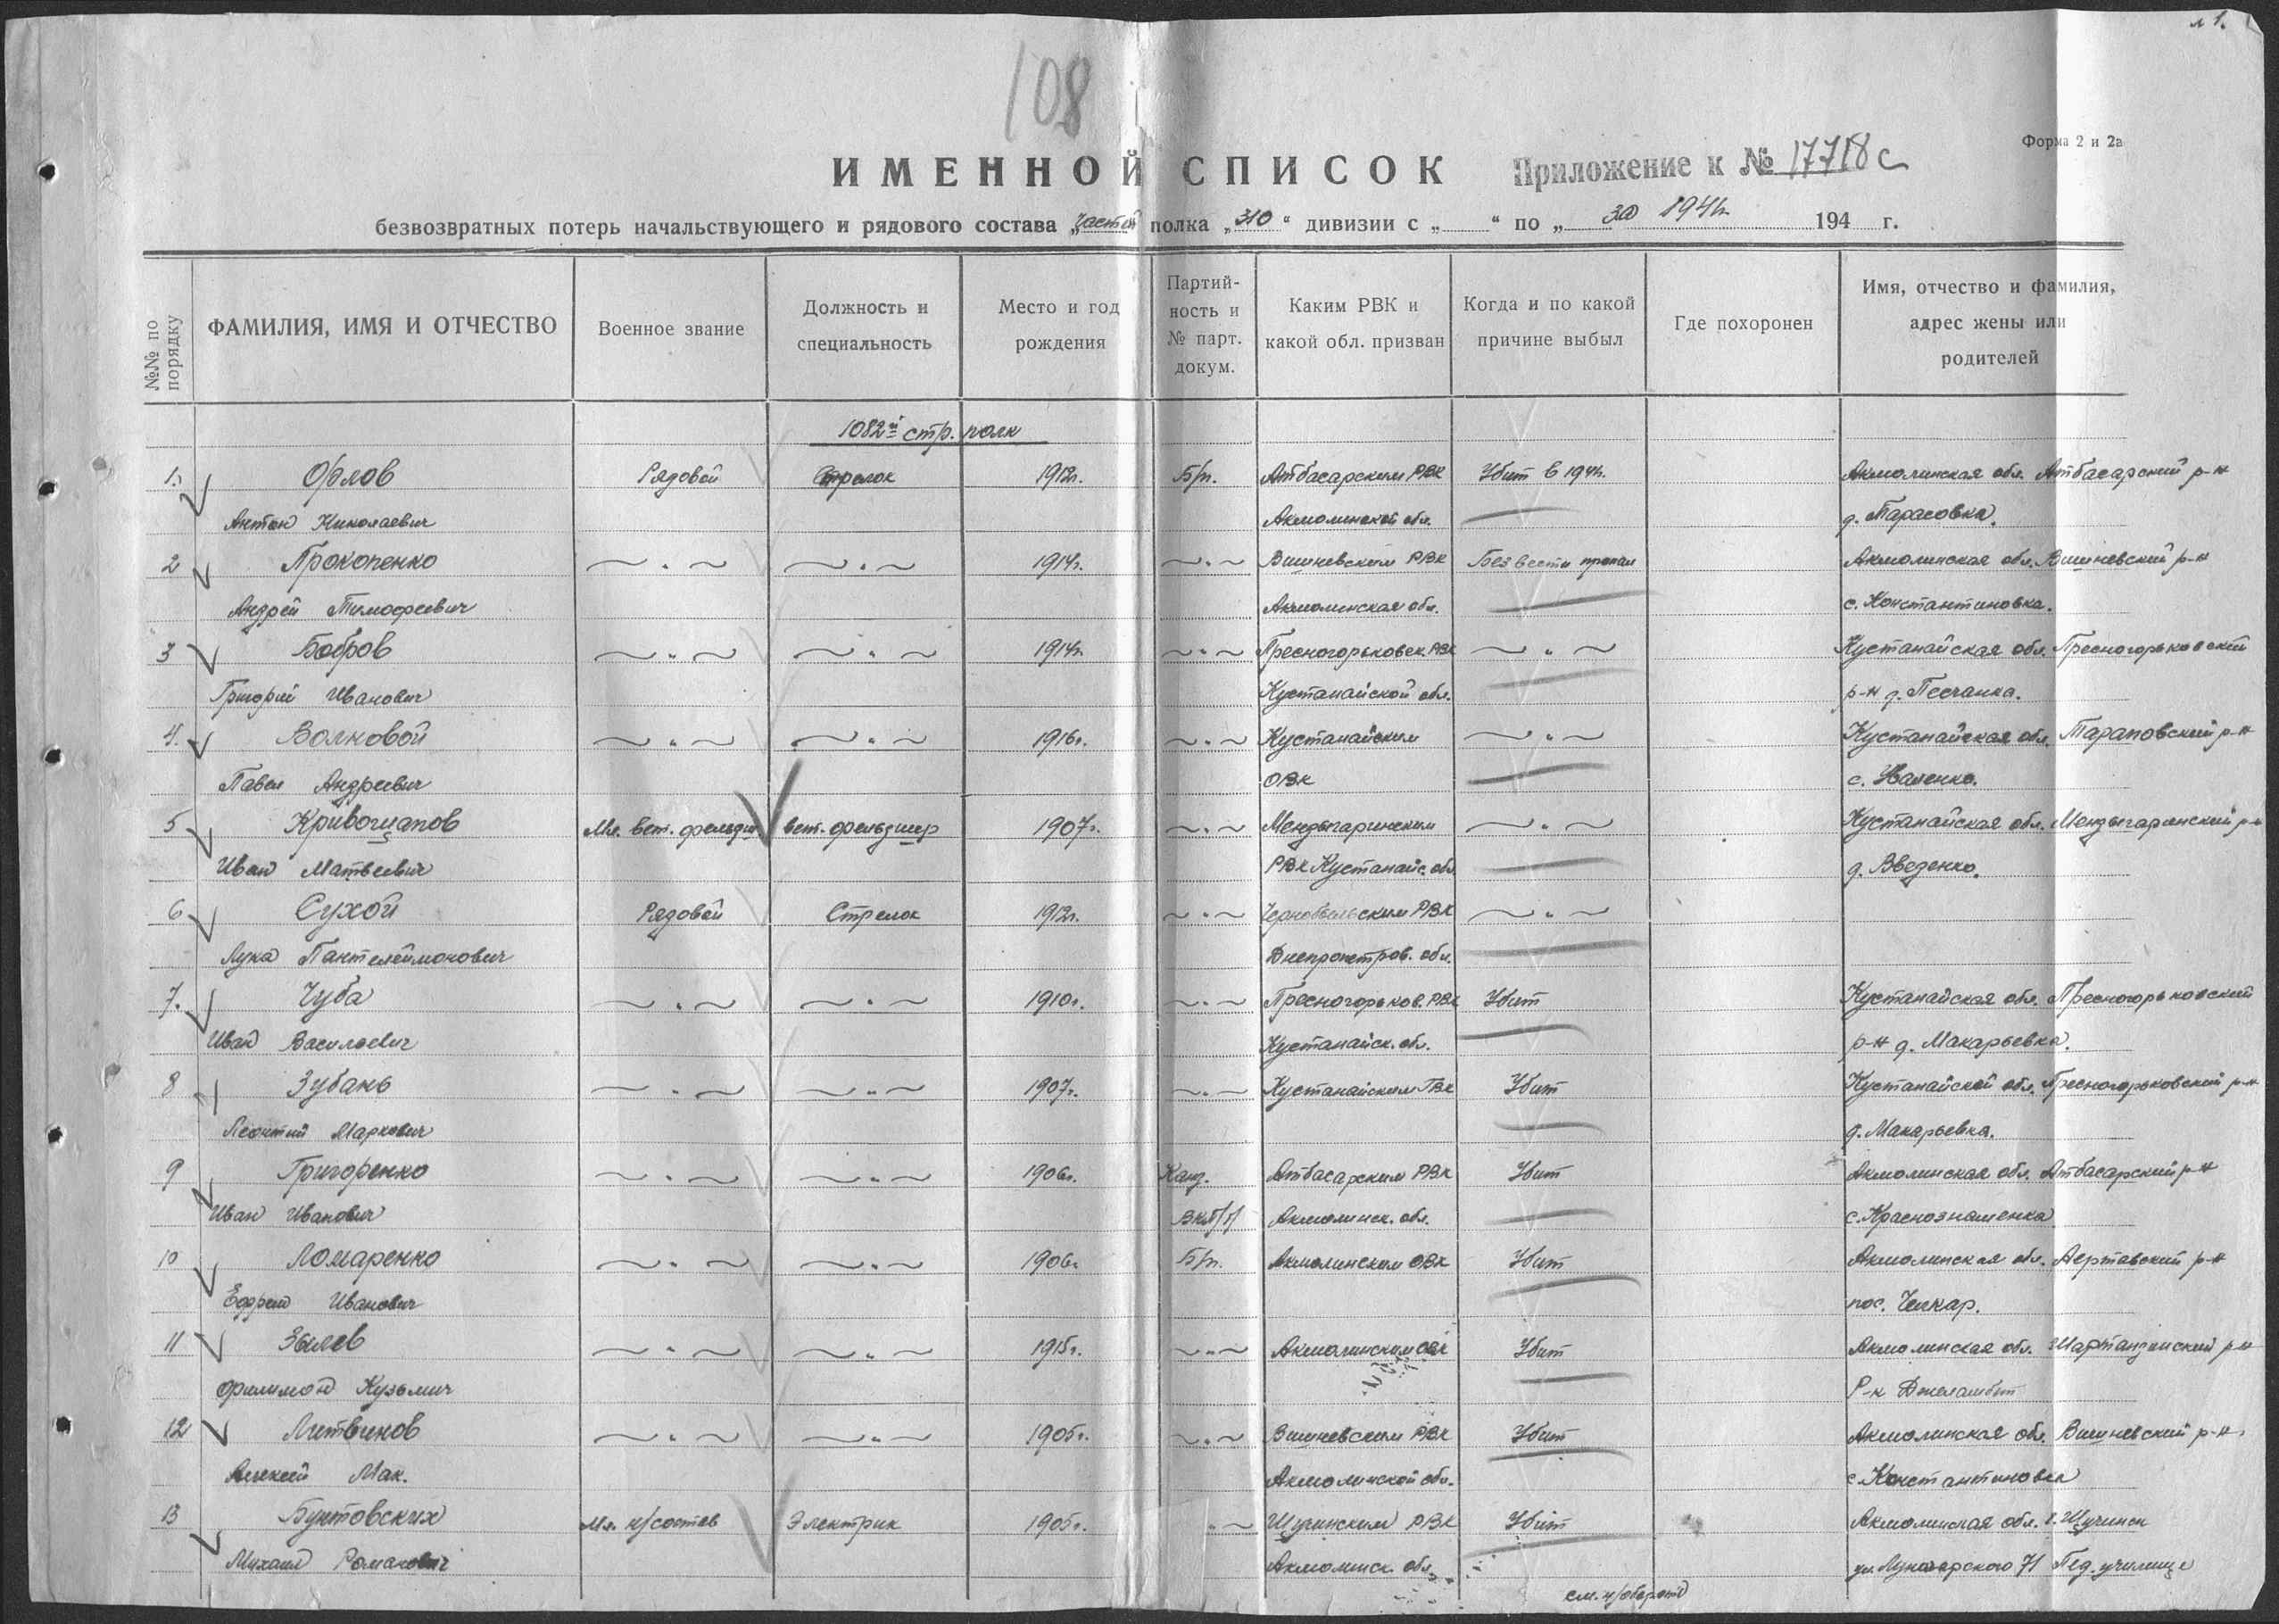 л 1.
108
Форма 2 и 2а
ИМЕННОЙ СПИСОК Приложение к № 17718с
безвозвратных потерь начальствующего и рядового состава „частей полка „310“ дивизии с „ “ по „ за 1941г. 194 г.
№№ по порядку
ФАМИЛИЯ, ИМЯ И ОТЧЕСТВО
Военное звание
Должность и специальность
Место и год рождения
Партий-ность и № парт. докум.
Каким РВК и какой обл. призван
Когда и по какой причине выбыл
Где похоронен
Имя, отчество и фамилия, адрес жены или родителей
1082й стр. полк
1. Орлов Рядовой Стрелок 1912г. Б/п. Атбасарским РВК Убит в 1941г. Акмолинская обл. Атбасарский р-н
Антон Николаевич Акмолинской обл. д. Тарасовка.
2 Прокопенко 〜 " 〜 〜 " 〜 1914г. 〜 " 〜 Вишневским РВК Без вести пропал Акмолинская обл. Вишневский р-н
Андрей Тимофеевич Акмолинская обл. с. Константиновка.
3 Бобров 〜 " 〜 〜 " 〜 1914г. 〜 " 〜 Пресногорьковск. РВК 〜 " 〜 Кустанайская обл. Пресногорьковский
Григорий Иванович Кустанайской обл. р-н д. Песчанка.
4. Волновой 〜 " 〜 〜 " 〜 1916г. 〜 " 〜 Кустанайским 〜 " 〜 Кустанайская обл. Тарановский р-н
Павел Андреевич ОВК с.
5 Кривощапов Мл. вет. фельдш. вет. фельдшер 1907г. 〜 " 〜 Мендыгаринским 〜 " 〜 Кустанайская обл. Мендыгаринский р-н
Иван Матвеевич РВК Кустанайс. обл. д. Введенко.
6 Сухой Рядовой Стрелок 1912г. 〜 " 〜 Чернобыльским РВК 〜 " 〜
Лука Пантелеймонович Днепропетров. обл.
7. Чуба 〜 " 〜 〜 " 〜 1910г. 〜 " 〜 Пресногорьков. РВК Убит Кустанайская обл. Пресногорьковский
Иван Васильевич Кустанайск. обл. р-н д. Макарьевка.
8 Зубань 〜 " 〜 〜 " 〜 1907г. 〜 " 〜 Кустанайским ГВК Убит Кустанайской обл. Пресногорьковский р-н
Леонтий Маркович д. Макарьевка.
9 Григоренко 〜 " 〜 〜 " 〜 1906г. Канд. Атбасарским РВК Убит Акмолинская обл. Атбасарский р-н
Иван Иванович ВКП/б/ Акмолинск. обл. с. Краснознаменка
10 Ломаренко 〜 " 〜 〜 " 〜 1906г. Б/п. Акмолинским ОВК Убит Акмолинская обл. Аертавский р-н
Ефрем Иванович пос. Челкар.
11 Зылев 〜 " 〜 〜 " 〜 1915г. 〜 " 〜 Акмолинским ОВК Убит Акмолинская обл. Шартандинский р-н
Филимон Кузьмич Р-к Джеламбет
12 Литвинов 〜 " 〜 〜 " 〜 1905г. 〜 " 〜 Вишневским РВК Убит Акмолинская обл. Вишневский р-н
Алексей Мак. Акмолинской обл. с. Константиновка
13 Бунтовских Мл. н/состав Электрик 1905г. " 〜 Щучинским РВК Убит Акмолинская обл. г. Щучинск
Михаил Романович Акмолинск. обл. ул. Луначарского 71 Пед. училище
см. н/обороте